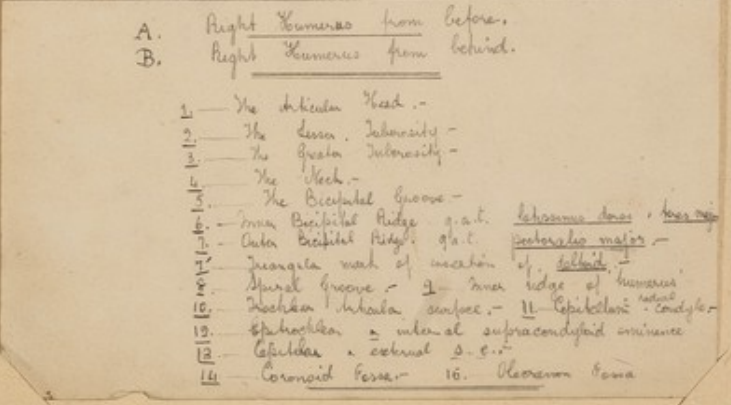 A. Right Humerus from before.
B. Right Humerus from behind.
1. The Articular Head.-
2. The Lesser. Tuberosity-
3. The Greater Tuberosity-
4. The Neck.-
5. The Bicipital Groove.-
6.- Inner Bicipital Ridge g.a.t. latissimus dorsi, teres major
7.- Outer Bicipital Ridge. g.a.t. pectoralis major.-
7' Triangular mark of insertion of deltoid.-
8. Spiral Groove.- 9. Inner ridge of humerus
10. Trochlear Articular surface.- 11. Capitellum- radial condyle.-
12. Epitrochlear internal supracondyloid eminence
13 external s.c.-
14 Coronoid Fossa.- 16. Olecranon Fossa